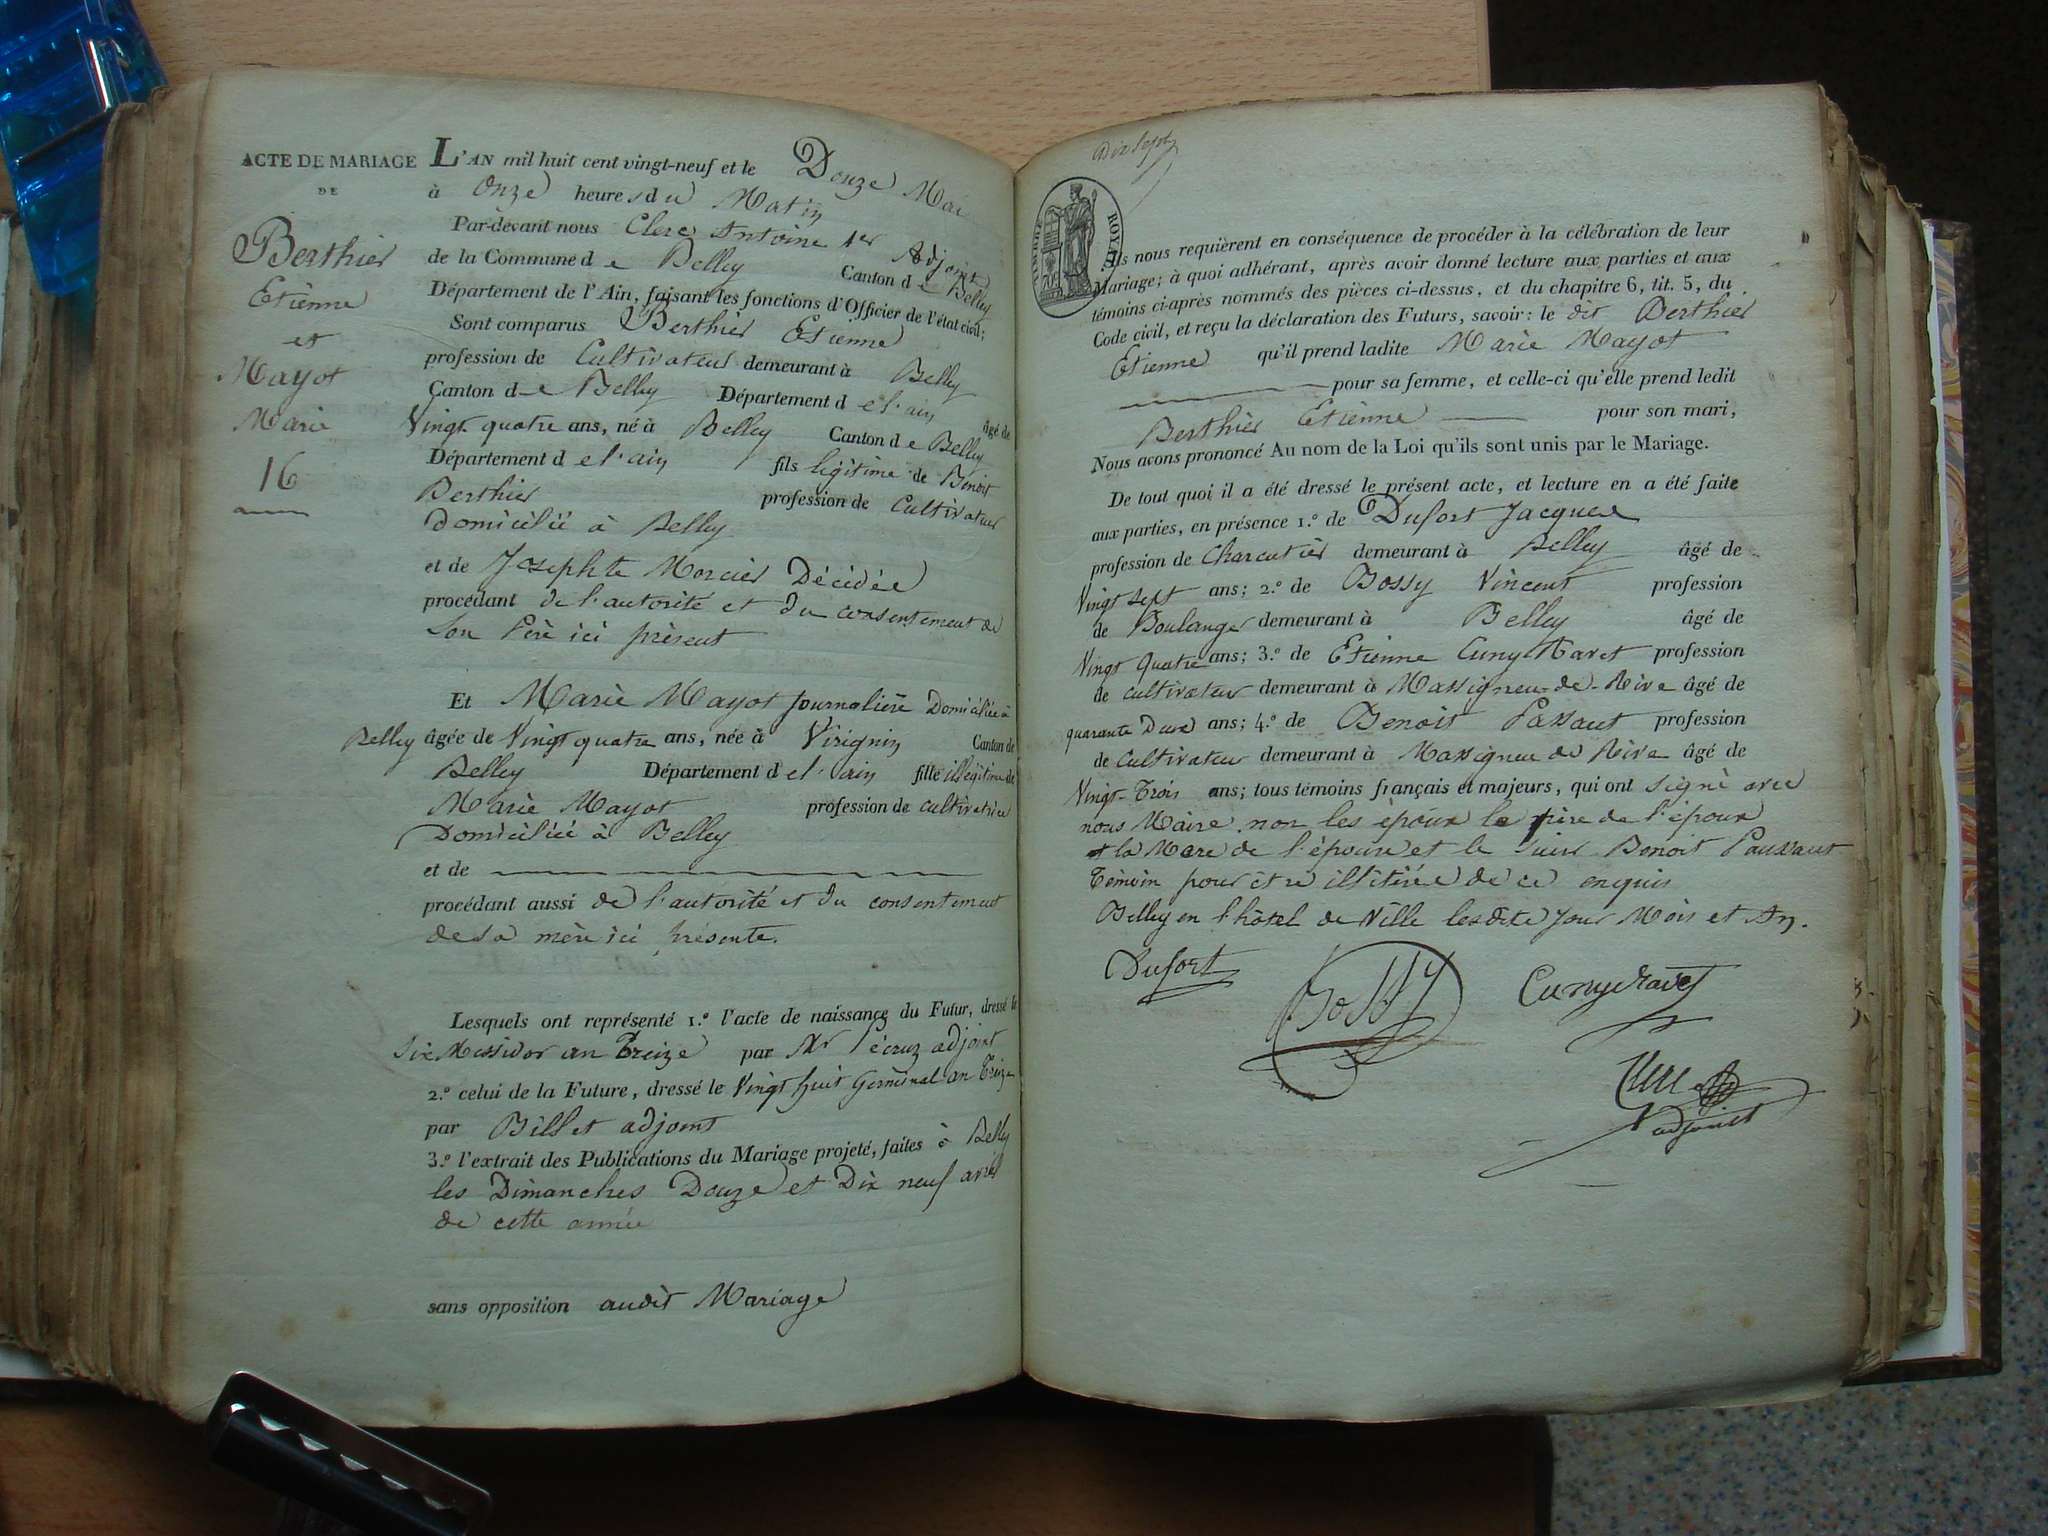 ACTE DE MARIAGE
DE
Berthier
Etiènne
et
Mayot
Marie
16
L'AN mil huit cent vingt-neuf et le Douze Mai
à Onze heures du Matin
Par-devant nous Clerc Antoine 1er Adjoint
de la Commune de Belley Canton de Belley
Département de l'Ain, faisant les fonctions d'Officier de l'état civil;
Sont comparus Berthier Etienne
profession de Cultivateur demeurant à Belley
Canton de Belley Département de l'ain âgé de
Vingt-quatre ans, né à Belley Canton de Belley
Département de l'ain fils légitime de Benoit
Berthier profession de Cultivateur
Domicilié à Belley
et de Josephte Morcier Décédée
procédant de l'autorité et du consentement de
son Père ici présent
Et Marie Mayot journalière Domiciliée à
Belley âgée de Vingt quatre ans, née à Virignin Canton de
Belley Département de l'ain fille illégitime de
Marie Mayot profession de cultivatrice
Domiciliée à Belley
et de
procédant aussi de l'autorité et du consentement
de sa mère ici présente.
Lesquels ont représenté 1.º l'acte de naissance du Futur, dressé le
Six Messidor an Treize par Mr Pécruz adjoint
2.º celui de la Future, dressé le Vingt huit Germinal an Treize
par Billet adjoint
3.º l'extrait des Publications du Mariage projeté, faites à Belley
les Dimanches Douze et Dix neuf avril
de cette année
sans opposition audit Mariage
Dix Sept
TIMBRE ROYAL
Ils nous requièrent en conséquence de procéder à la célébration de leur
Mariage; à quoi adhérant, après avoir donné lecture aux parties et aux
témoins ci-après nommés des pièces ci-dessus, et du chapitre 6, tit. 5, du
Code civil, et reçu la déclaration des Futurs, savoir: le dit Berthier
Etienne qu'il prend ladite Marie Mayot
pour sa femme, et celle-ci qu'elle prend ledit
Berthier Etiènne pour son mari,
Nous avons prononcé Au nom de la Loi qu'ils sont unis par le Mariage.
De tout quoi il a été dressé le présent acte, et lecture en a été faite
aux parties, en présence 1.º de Dufort Jacques
profession de Charcutier demeurant à Belley âgé de
Vingt sept ans; 2.º de Bossy Vincent profession
de Boulanger demeurant à Belley âgé de
Vingt Quatre ans; 3.º de Etienne Cuny Ravet profession
de cultivateur demeurant à Massigneu-de-Rive âgé de
quarante Deux ans; 4.º de Benoit Passaut profession
de Cultivateur demeurant à Massigneu de Rive âgé de
Vingt-Trois ans; tous témoins français et majeurs, qui ont signé avec
nous Maire non les époux le père de l'époux
et la Mère de l'épouse et le sieur Benoit Paussaut
Témoin pour être illitérée de ce enquis
Belley en l'hôtel de Ville lesdits Jour Mois et An.
Dufort
Bossy
Cuny Ravet
Clerc
adjoint